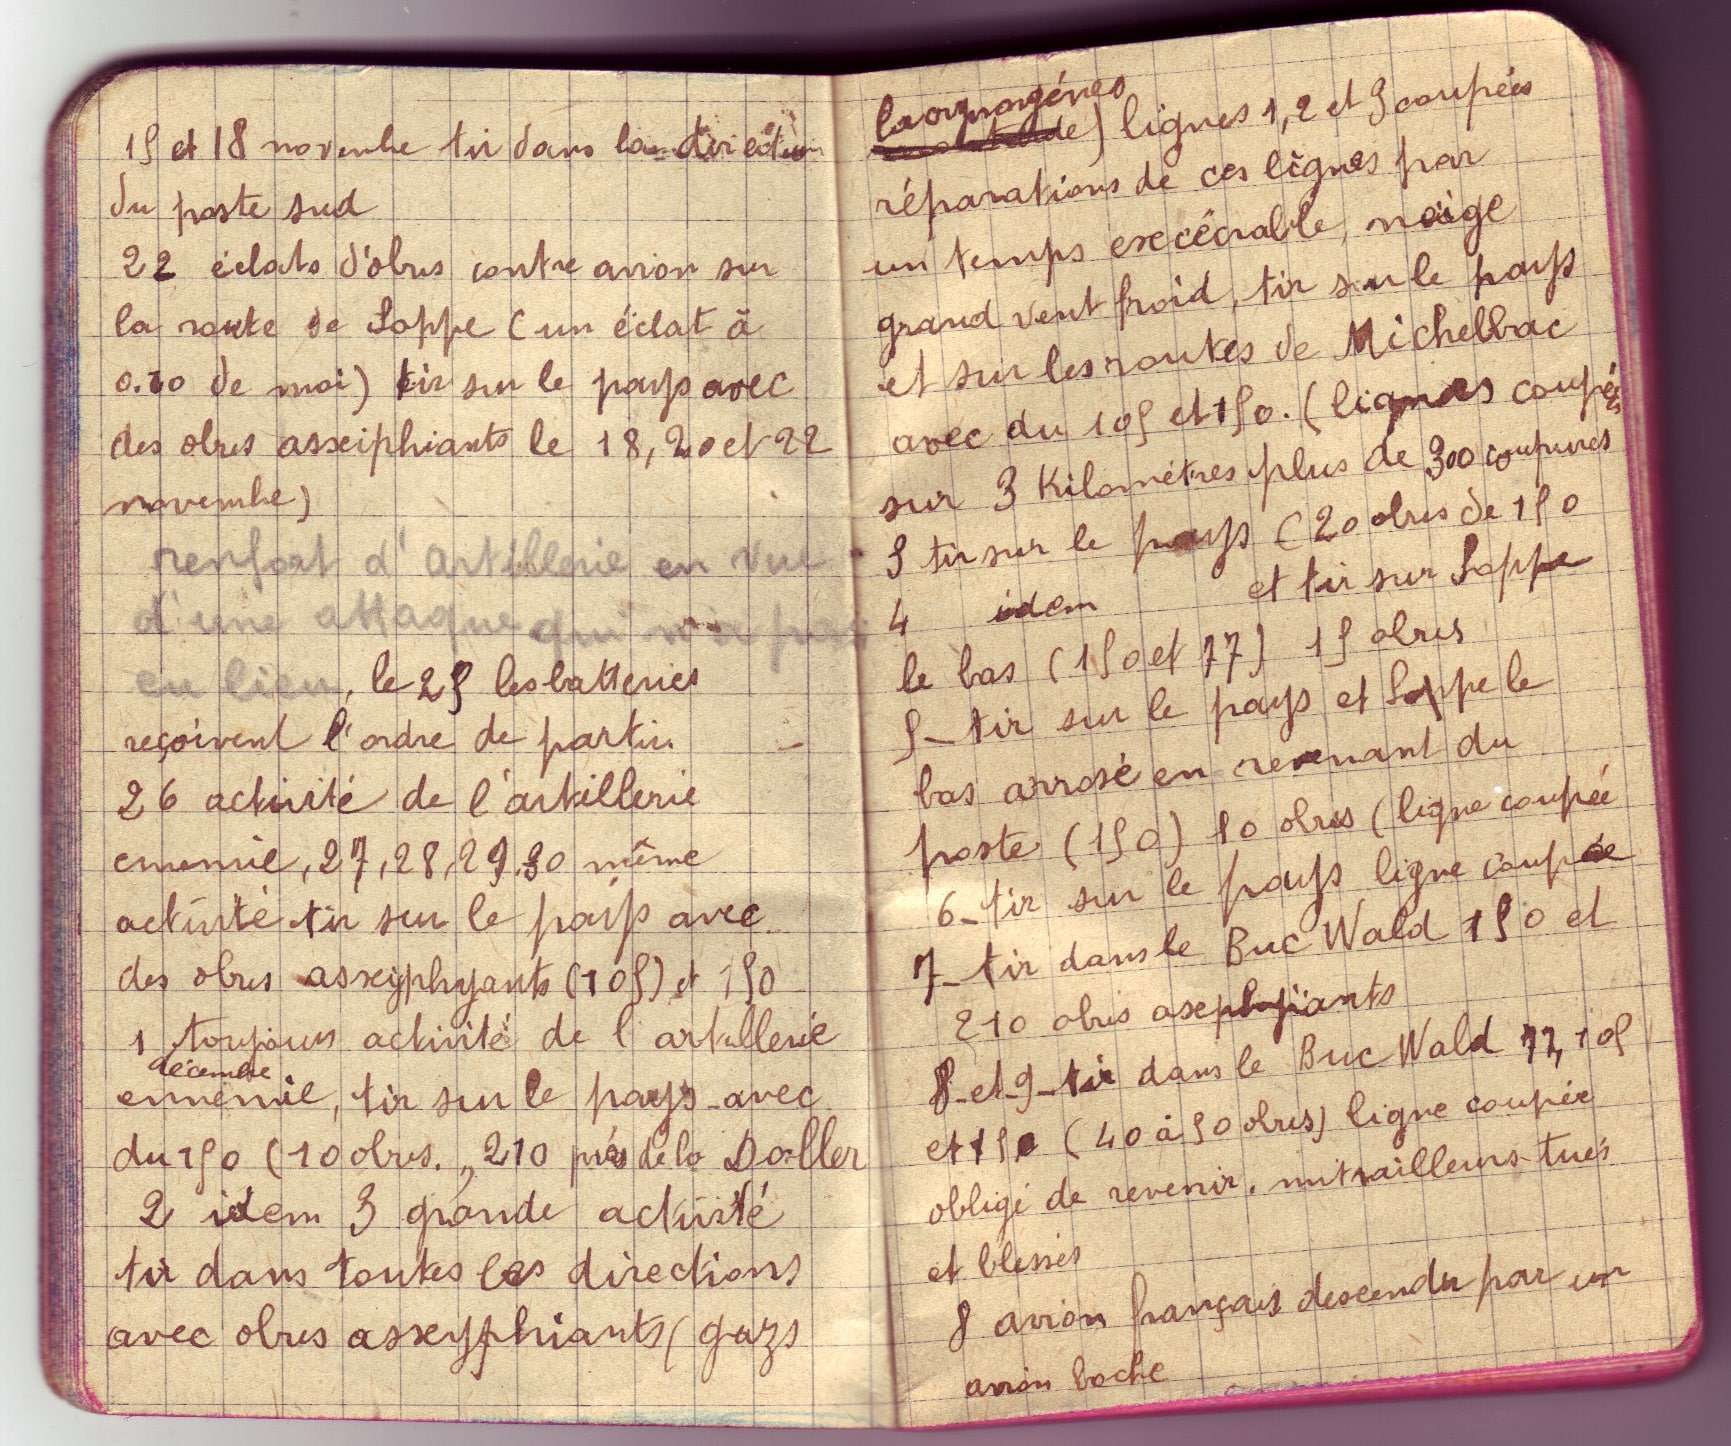 15 et 18 novembre tir dans la direction
du poste sud
22 éclats d'obus contre avion sur
la route de Soppe (un éclat à
0.10 de moi) tir sur le pays avec
des obus assxiphiants le 18, 20 et 22
novembre)
renfort d'artillerie en vue
d'une attaque qui n'a pas
eu lieu, le 25 les batteries
reçoivent l'ordre de partir.
26 activité de l'artillerie
ennemie, 27, 28, 29, 30 même
activité tir sur le pays avec
des obus assxyphyants (105) et 150
1 toujours activité de l'artillerie
décembre
ennemie, tir sur le pays avec
du 150 (10 obus. „ 210 près de la Doller
2 idem 3 grande activité
tir dans toutes les directions
avec obus assxyphiants (gazs
lacrymogénes) lignes 1, 2 et 5 coupées
réparations de ces lignes par
un temps excécrable, neige
grand vent froid, tir sur le pays
et sur les routes de Michelbac
avec du 105 et 150. (lignes coupées
sur 3 Kilomètres plus de 300 coupures
5 tir sur le pays (20 obus de 150
4 idem et tir sur Soppe
le bas (150 et 77) 15 obus
5 - tir sur le pays et Soppe le
bas arrosé en revenant du
poste (150) 10 obus (ligne coupée
6 - tir sur le pays ligne coupée
7 - tir dans le Buc Wald 150 et
210 obus asephyiants
8 - et 9 - tir dans le Buc Wald 77, 105
et 150 (40 à 50 obus) ligne coupée
obligé de revenir. mitrailleurs tués
et blessés
8 avion français descendu par un
avion boche